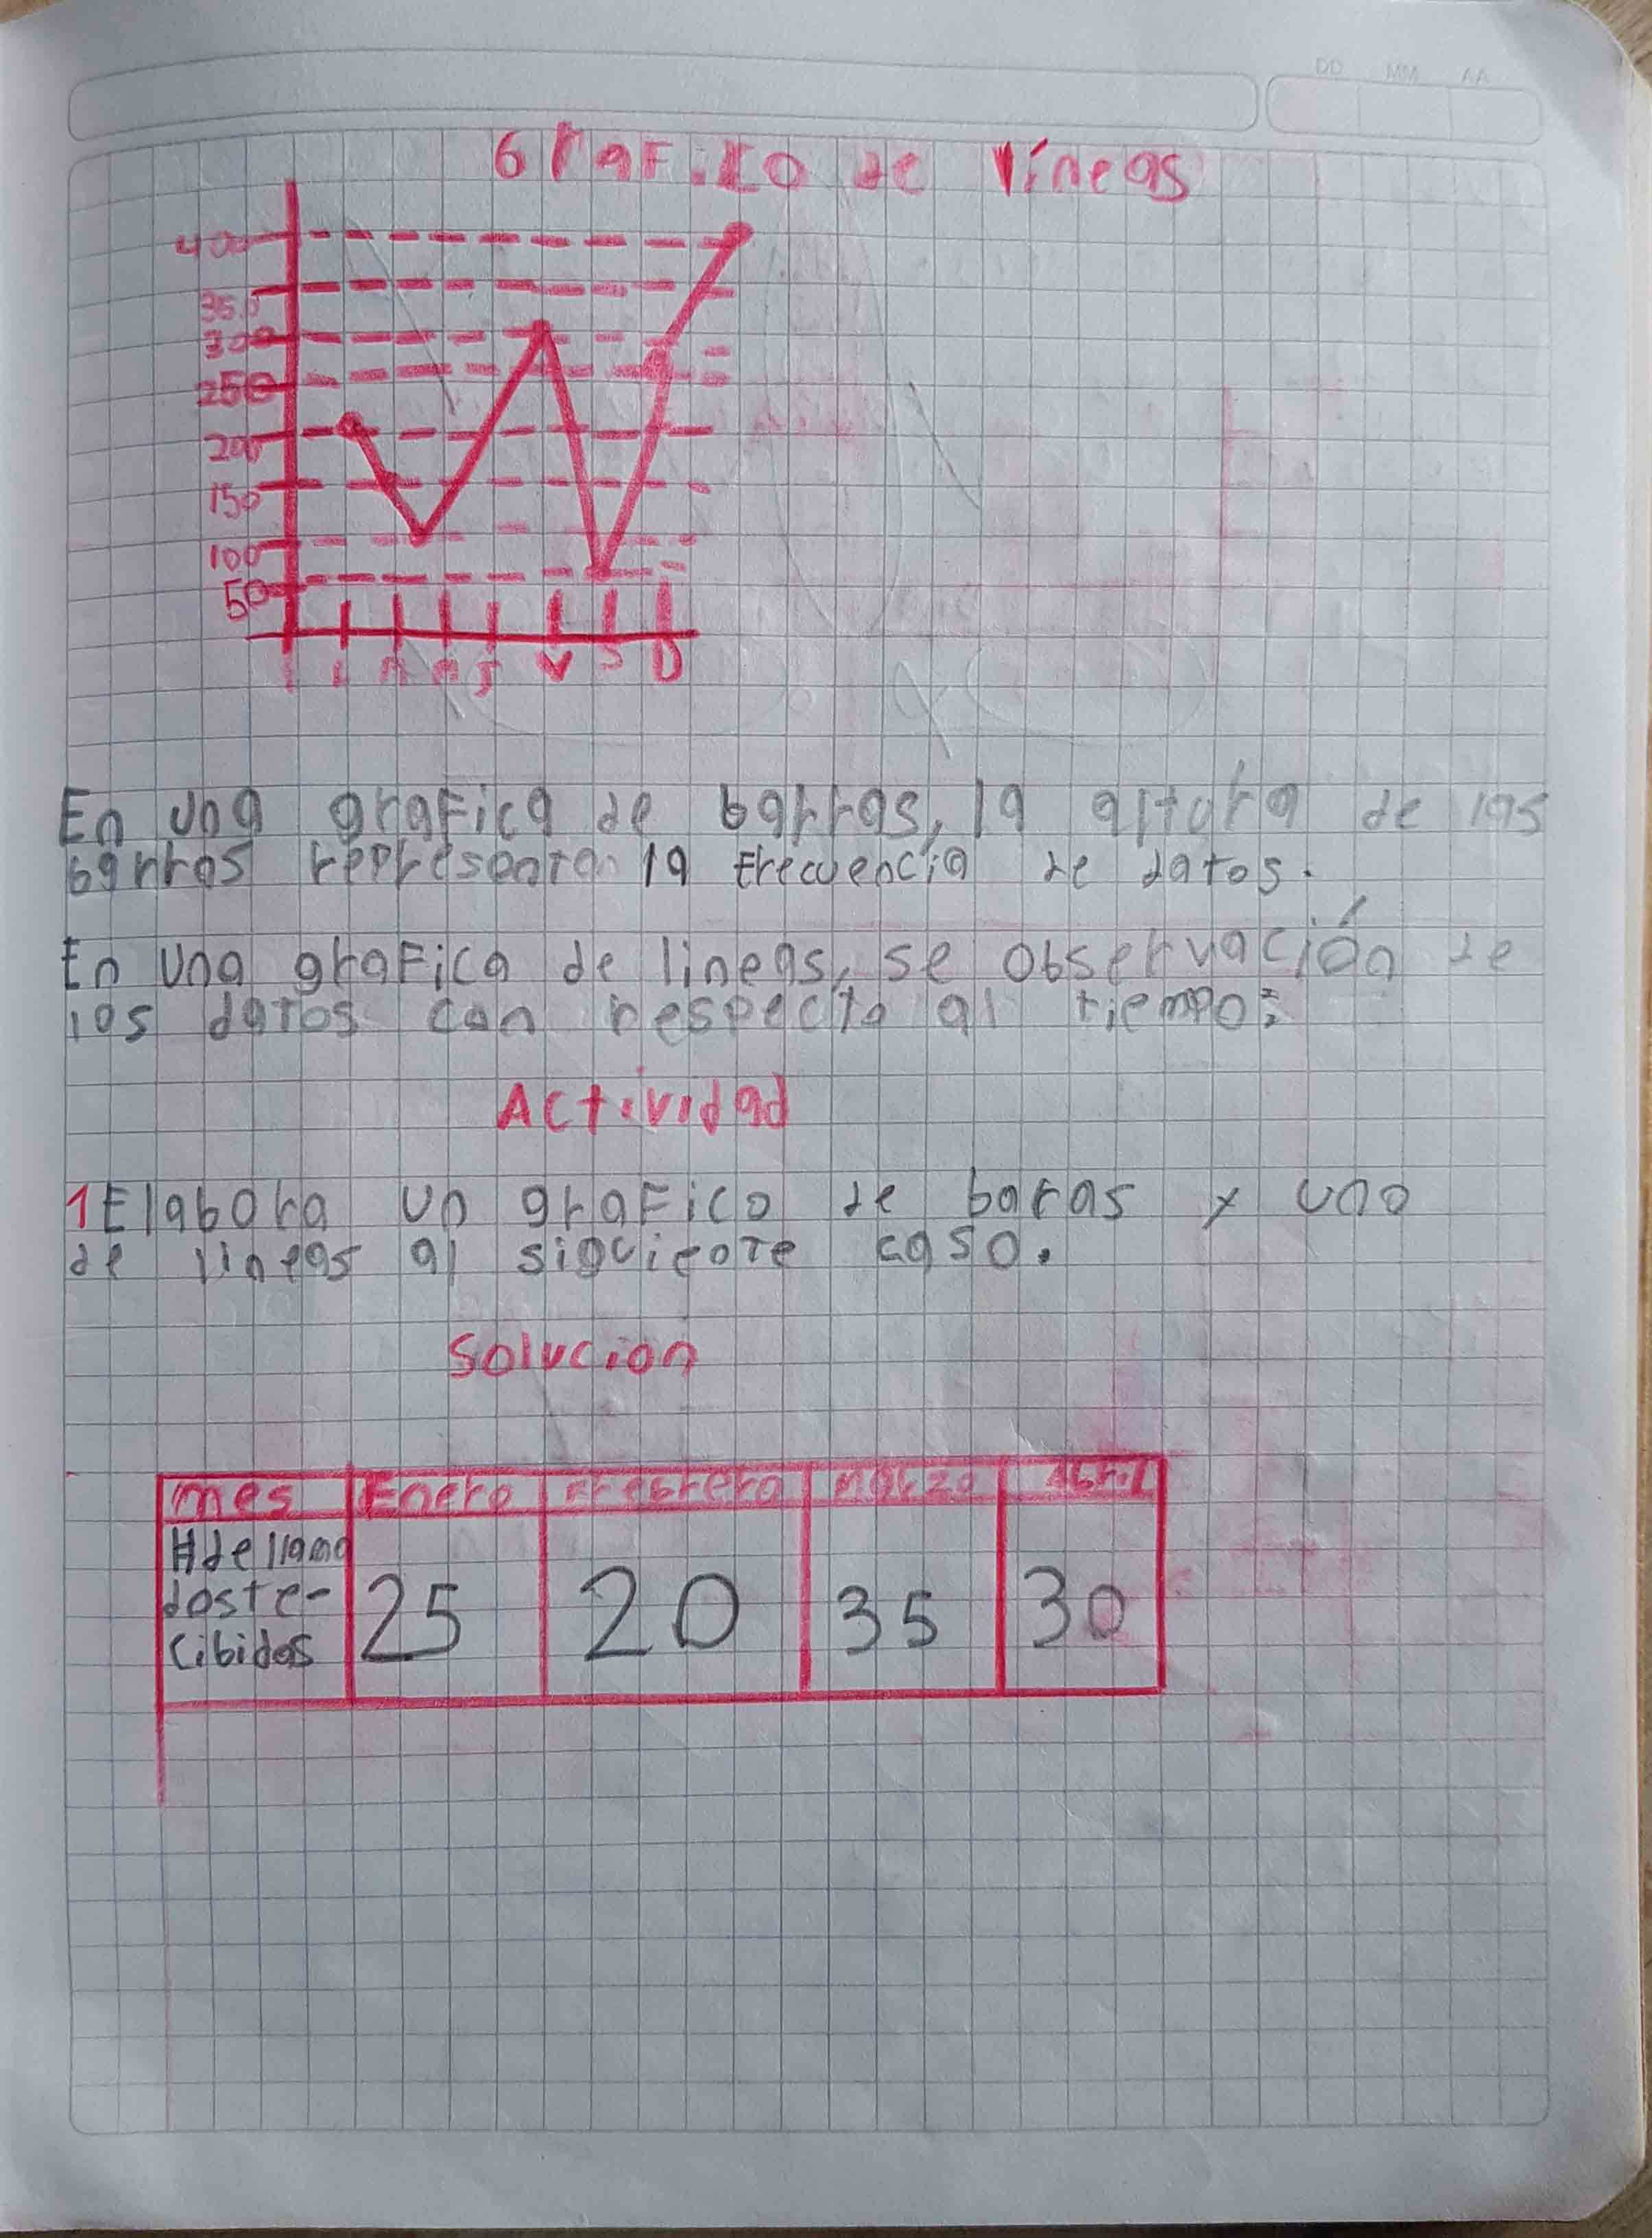 DD MM AA
Grafico de líneas
400
350
300
250
200
150
100
50
L M M J V S D
En una grafica de barras, la altura de las
barras representa la frecuencia de datos.
En una grafica de lineas, se observación de
los datos con respecto al tiempo:
Actividad
1 Elabora un grafico de baras y uno
de lineas al siguiente caso.
Solucion
mes Enero Frebrero Marzo Abril
# de llama
dos re-
cibidos 25 20 35 30